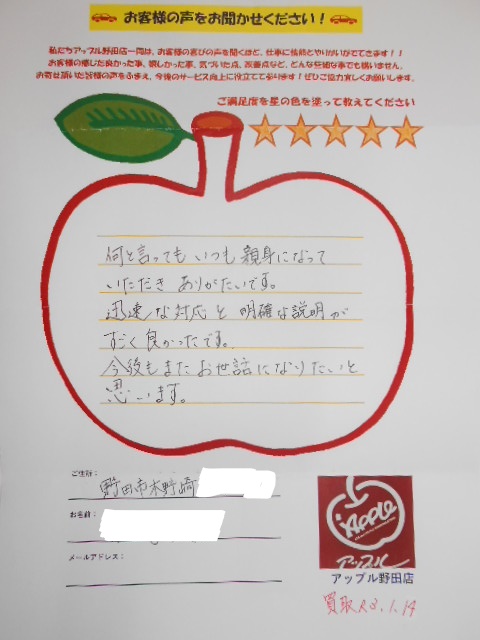 お客様の声をお聞かせください!
私たちアップル野田店一同は、お客様の喜びの声を聞くほど、仕事に情熱とやりがいがでてきます!!
お客様の感じた良かった事、嬉しかった事、気づいた点、改善点など、どんな些細な事でも構いません。
お寄せ頂いた皆様の声をふまえ、今後のサービス向上に役立てております!ぜひご協力宜しくお願いします。
ご満足度を星の色を塗って教えてください
何と言ってもいつも親身になって
いただき ありがたいです。
迅速な対応と明確な説明が
すごく良かったです。
今後もまたお世話になりたいと
思います。
ご住所:
野田市木野崎
お名前:
メールアドレス:
Apple
アップル
アップル野田店
買取R3.1.14